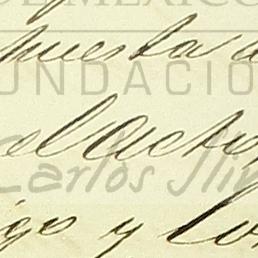 DE MÉXICO
puesta d
FUNDACIÓ
el acto,
Carlos Slim
igo y con